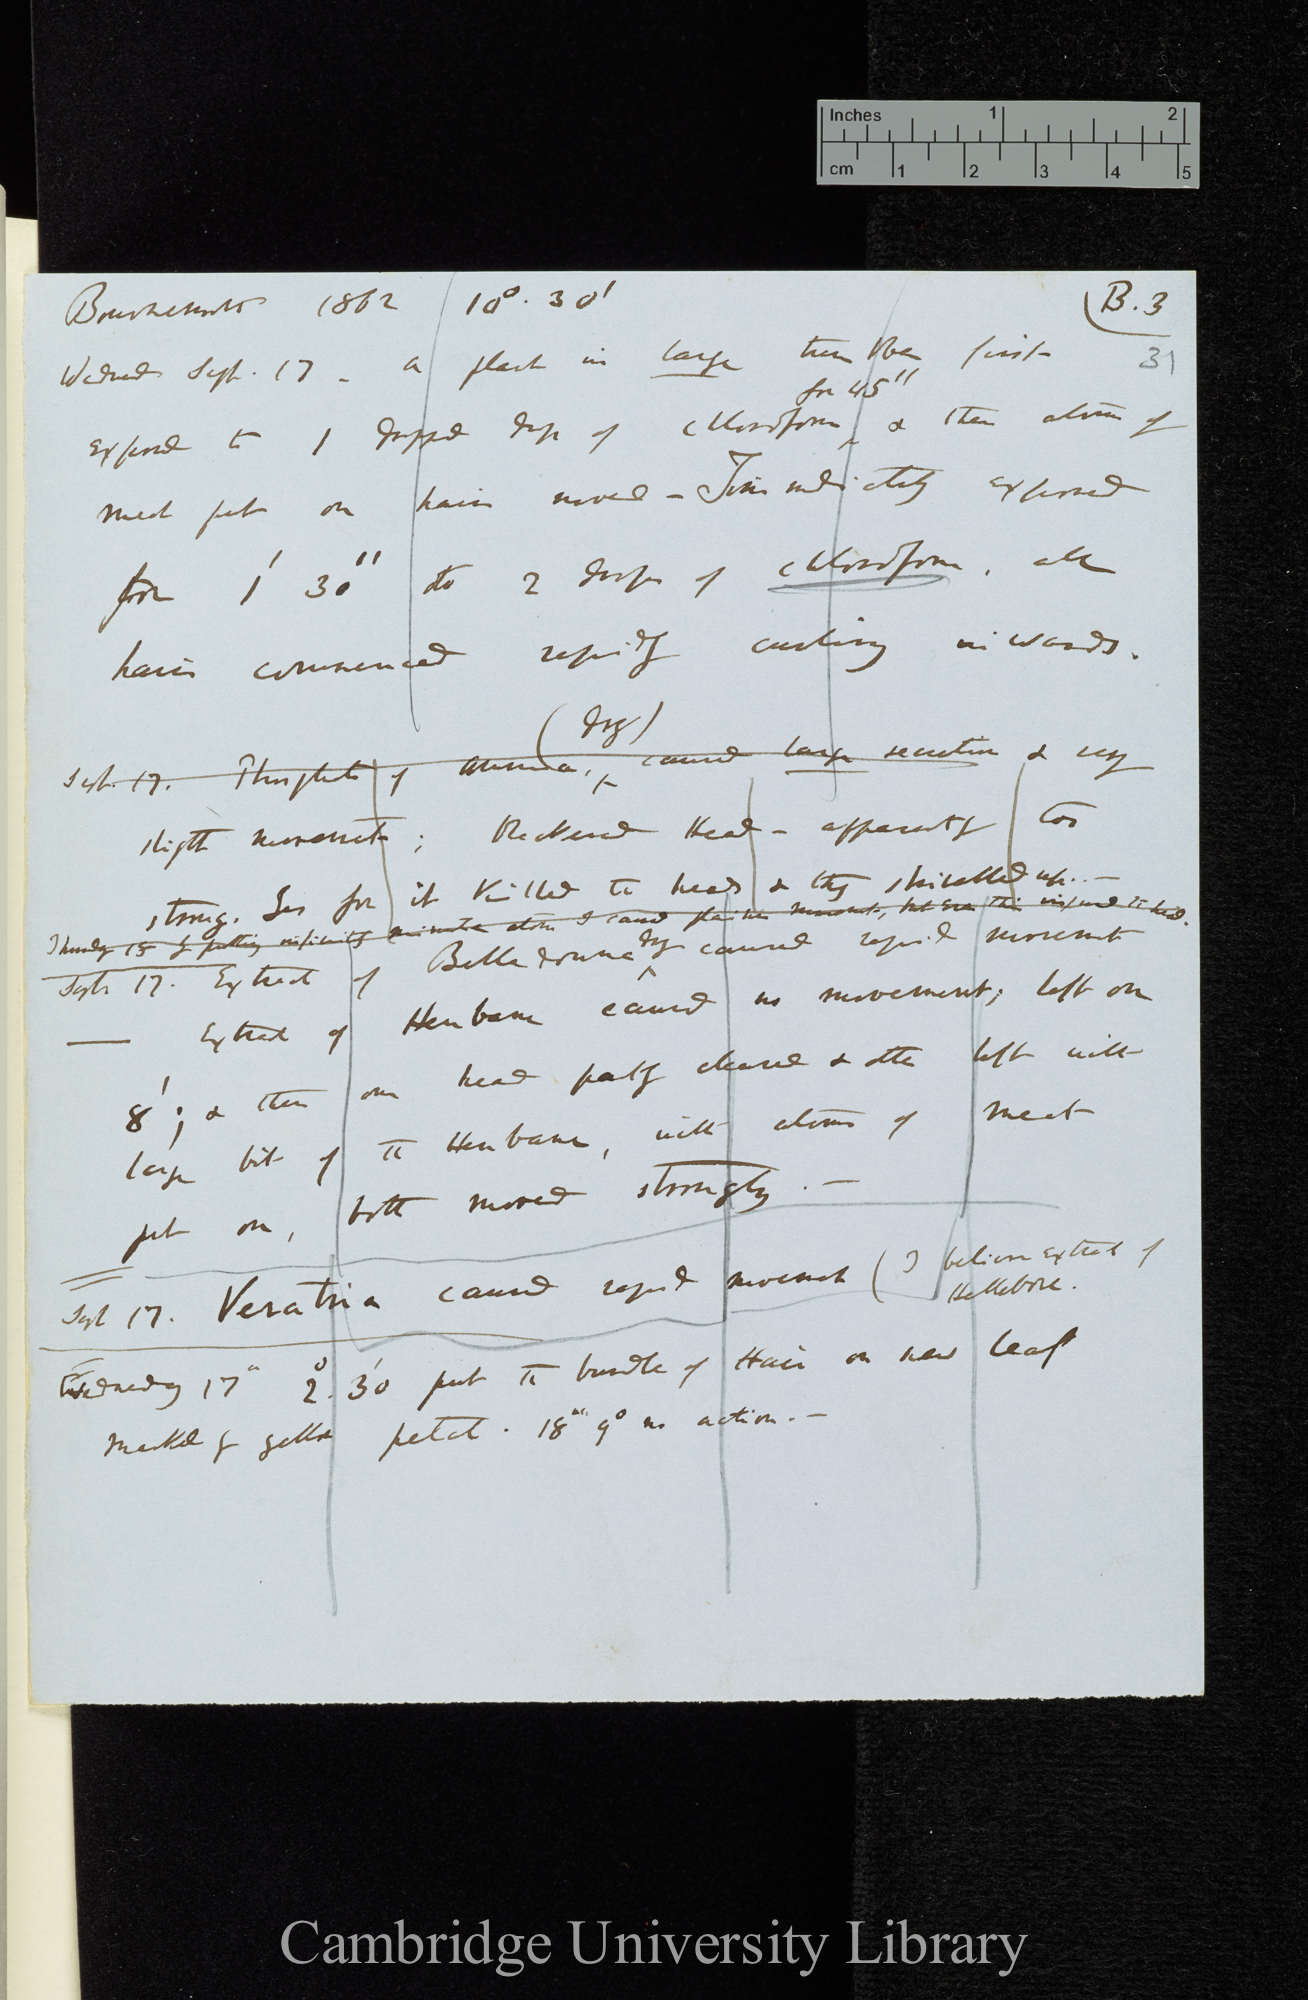 Inches 1 2
cm 1 2 3 4 5
Bournemouth 1862 10°. 30'
B. 3
31
Wednesd Sept. 17 - a plant in large tumbler first
for 45"
exposed to 1 drop of chloroform, & then atom of
meat put on hairs moved - Immediately exposed
for 1' 30" to 2 drops of chloroform. all
hairs commenced rapidly curling inwards.
(dry)
Sept. 17. Phosphate of ammonia, caused large secretion & very
slight movement; blackened Head - apparently too
strong. Yes for it killed the heads & they shrivelled up. -
Thursday 18 By putting infinitely minute atom I caused plain movement, but even this injured the head.
Sept 17. Extract of Belladonna dry caused rapid movement
— Extract of Henbane caused no movement; left on
8'; & then one head partly cleaned & other left with
large bit of the Henbane, with atoms of meat
put on, both moved strongly. -
Sept 17. Veratria caused rapid movement (I believe extract of
Hellebore.
Wednesday 17th 2°. 30' put the bundle of Hair on new leaf
marked by yellow petal. 18th 9° no action. -
Cambridge University Library